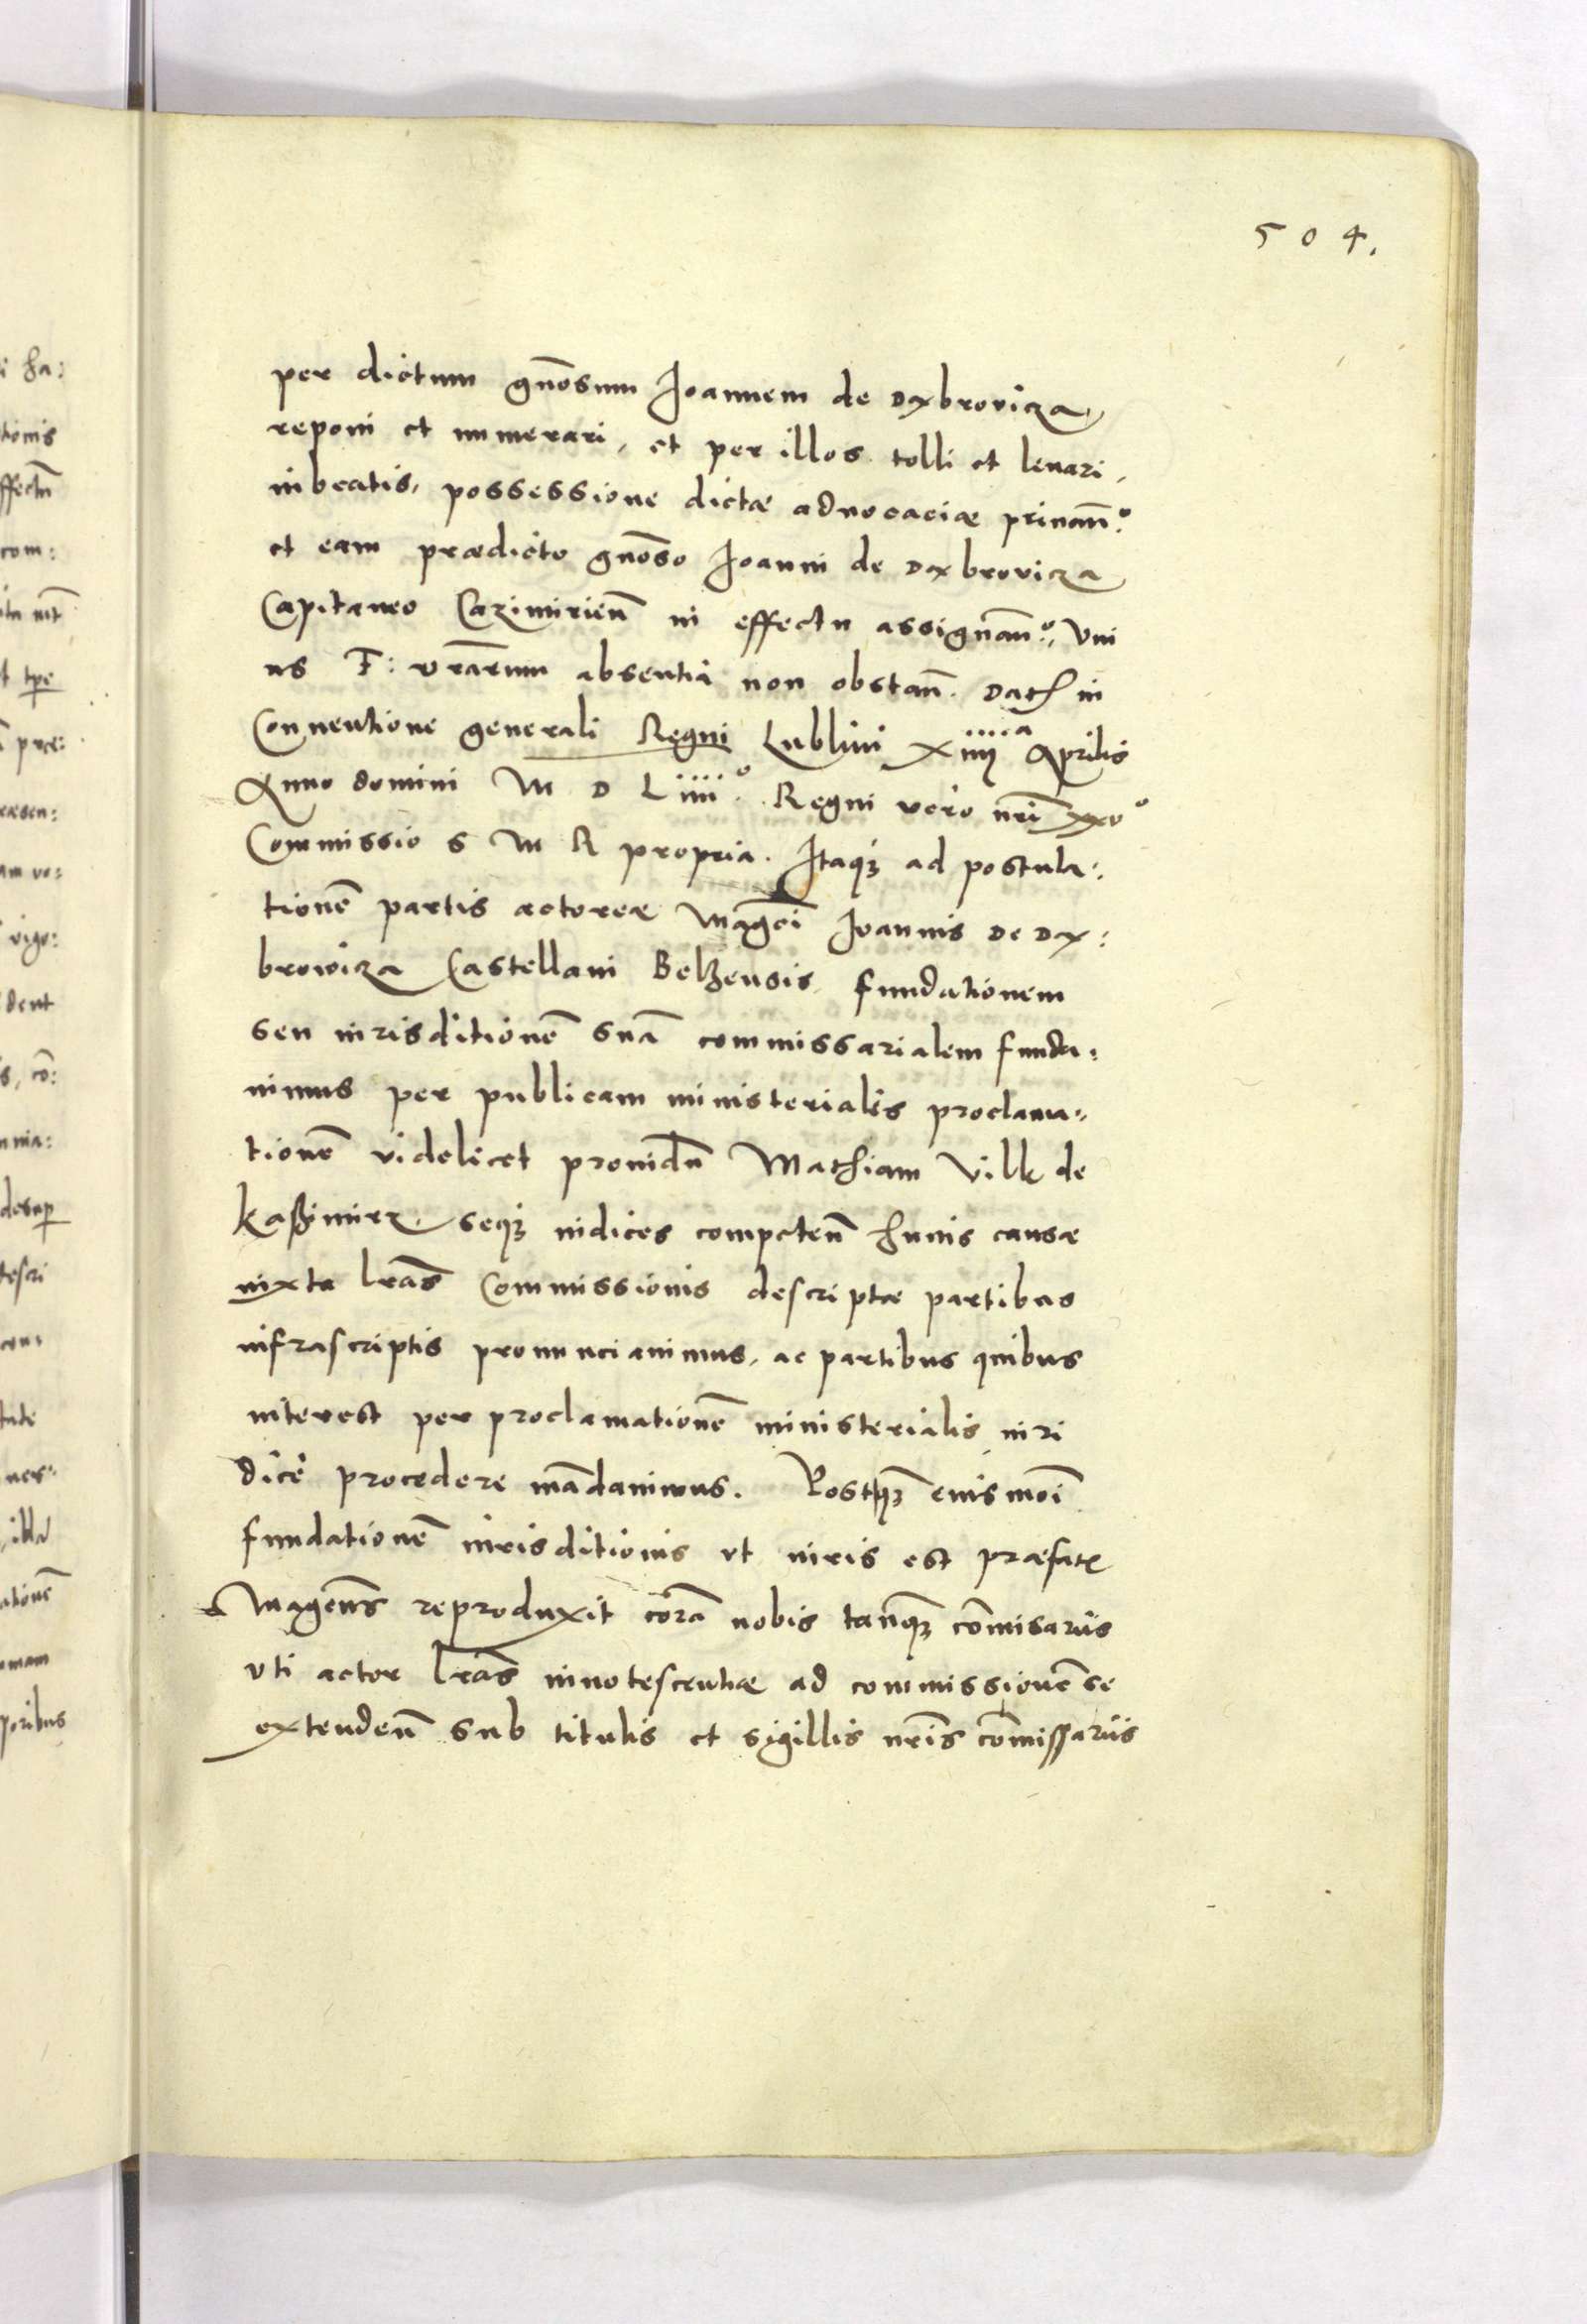 504.
per dictum gn̄osum Joannem de Dąbrovicza,
reponi et numerari, et per illos tolli et levari,
iubeatis, possessione dictæ advocaciæ privan̄.º
et eam prædicto gn̄oso Joanni de Dąbrovicza
Capitaneo Cazimirien̄ in effectu assignan̄.º, Uni
us F: vr̄arum absentia non obstan̄. Datꝭ in
Conventione generali Regni Lublini Xiiiiª Aprilis
Anno domini M D Liiii.º Regni vero nr̄i xxvº
Commissio S M R propria. Itaqꝫ ad postula:
tionē partis actoreæ Maḡci Joannis De Dą:
browicza Castellani Belzensis fundationem
seu iurisditionē suā commissarialem funda:
vimus per publicam ministerialis proclama:
tionē videlicet providū Mathiam Vilk de
Kaßimirz, seqꝫ iudices competen̄ huiis causæ
iuxta lr̄as Commissionis descriptæ partibus
infrascriptis pronunciavimus, ac partibus quibus
interest per proclamationē ministerialis iuri
dicè procedere mādavimus. Postqꝫ̄ euismōi
fundationē iurisditionis ut iuris est præfatꝭ
Maḡcus reproduxit corā nobis tanqꝫ̄ com̄isariis
uti actor lr̄as innotescentiæ ad commissionē se
extenden̄ sub titulis et sigillis nr̄is com̄issariis
i ha:
tionis
ffectū
com:
t tꝑe
vigo:
dent
s, cō:
tescri
illa
ationē
poribus